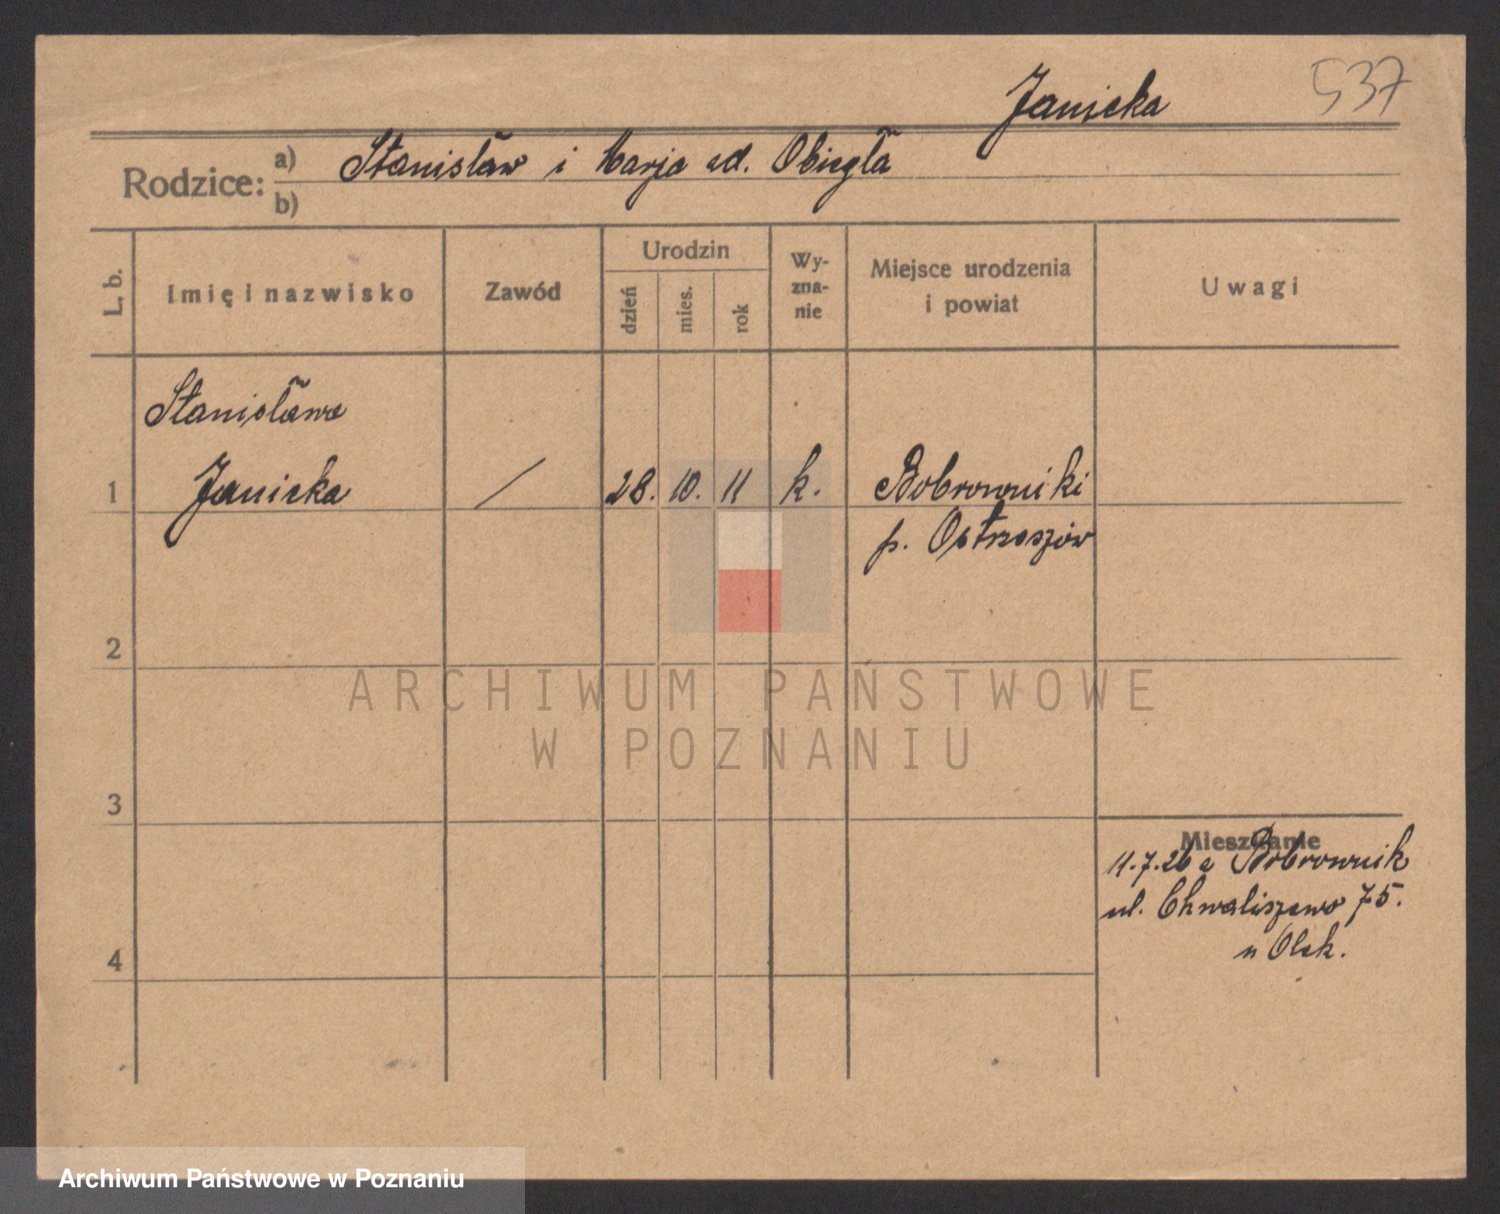 Janicka
537
Rodzice: a) Stanisław i Marja od. Obiegła
b)
L. b.
Imię i nazwisko
Zawód
Urodzin
dzień
mies.
rok
Wy-
zna-
nie
Miejsce urodzenia
i powiat
Uwagi
Stanisława
1 Janicka / 28. 10. 11 k. Bobrowniki
p. Ostrzeszów
2
ARCHIWUM PAŃSTWOWE
W POZNANIU
3
Mieszkanie
11.7.26 z Bobrownik
ul. Chwaliszewo 75.
4
Archiwum Państwowe w Poznaniu